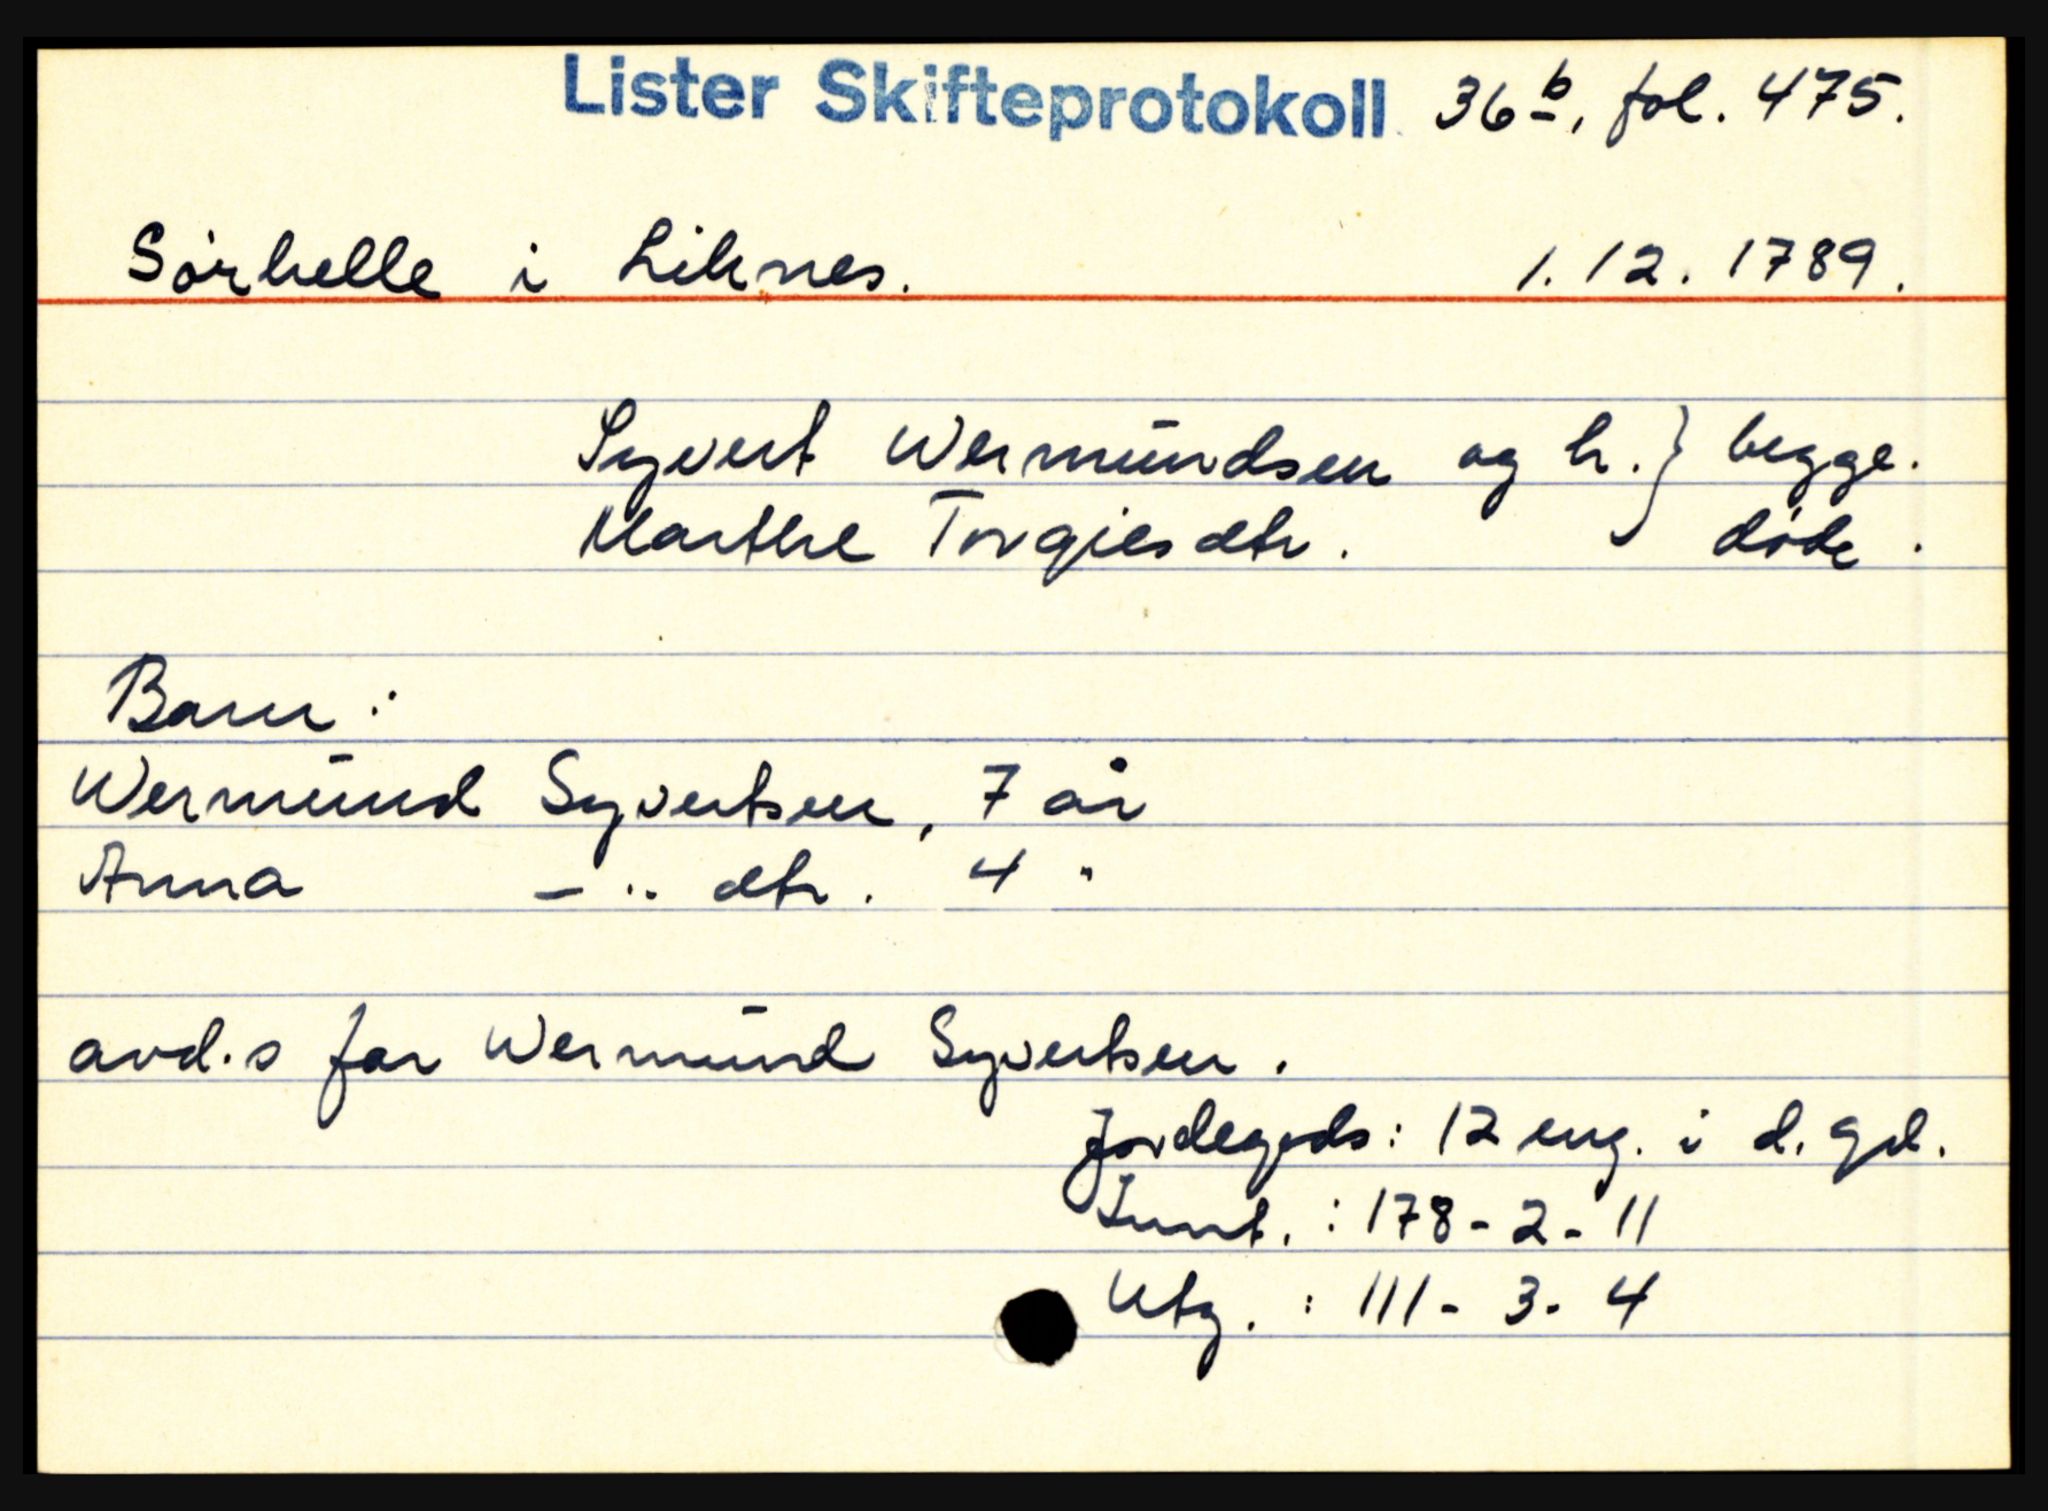 Lister Skifteprotokoll 36b, fol. 475.
Sørhelle i Liknes. 1.12.1789.
Syvert Wermundsen og h. } begge.
Marthe Torgiesdtr. døde.
Barn:
Wermund Syvertsen, 7 år
Anna —"— dtr. 4 "
avd.s far Wermund Syvertsen.
Jordegods: 12 eng. i d. gd.
Innt. : 178-2-11
Utg. : 111-3-4